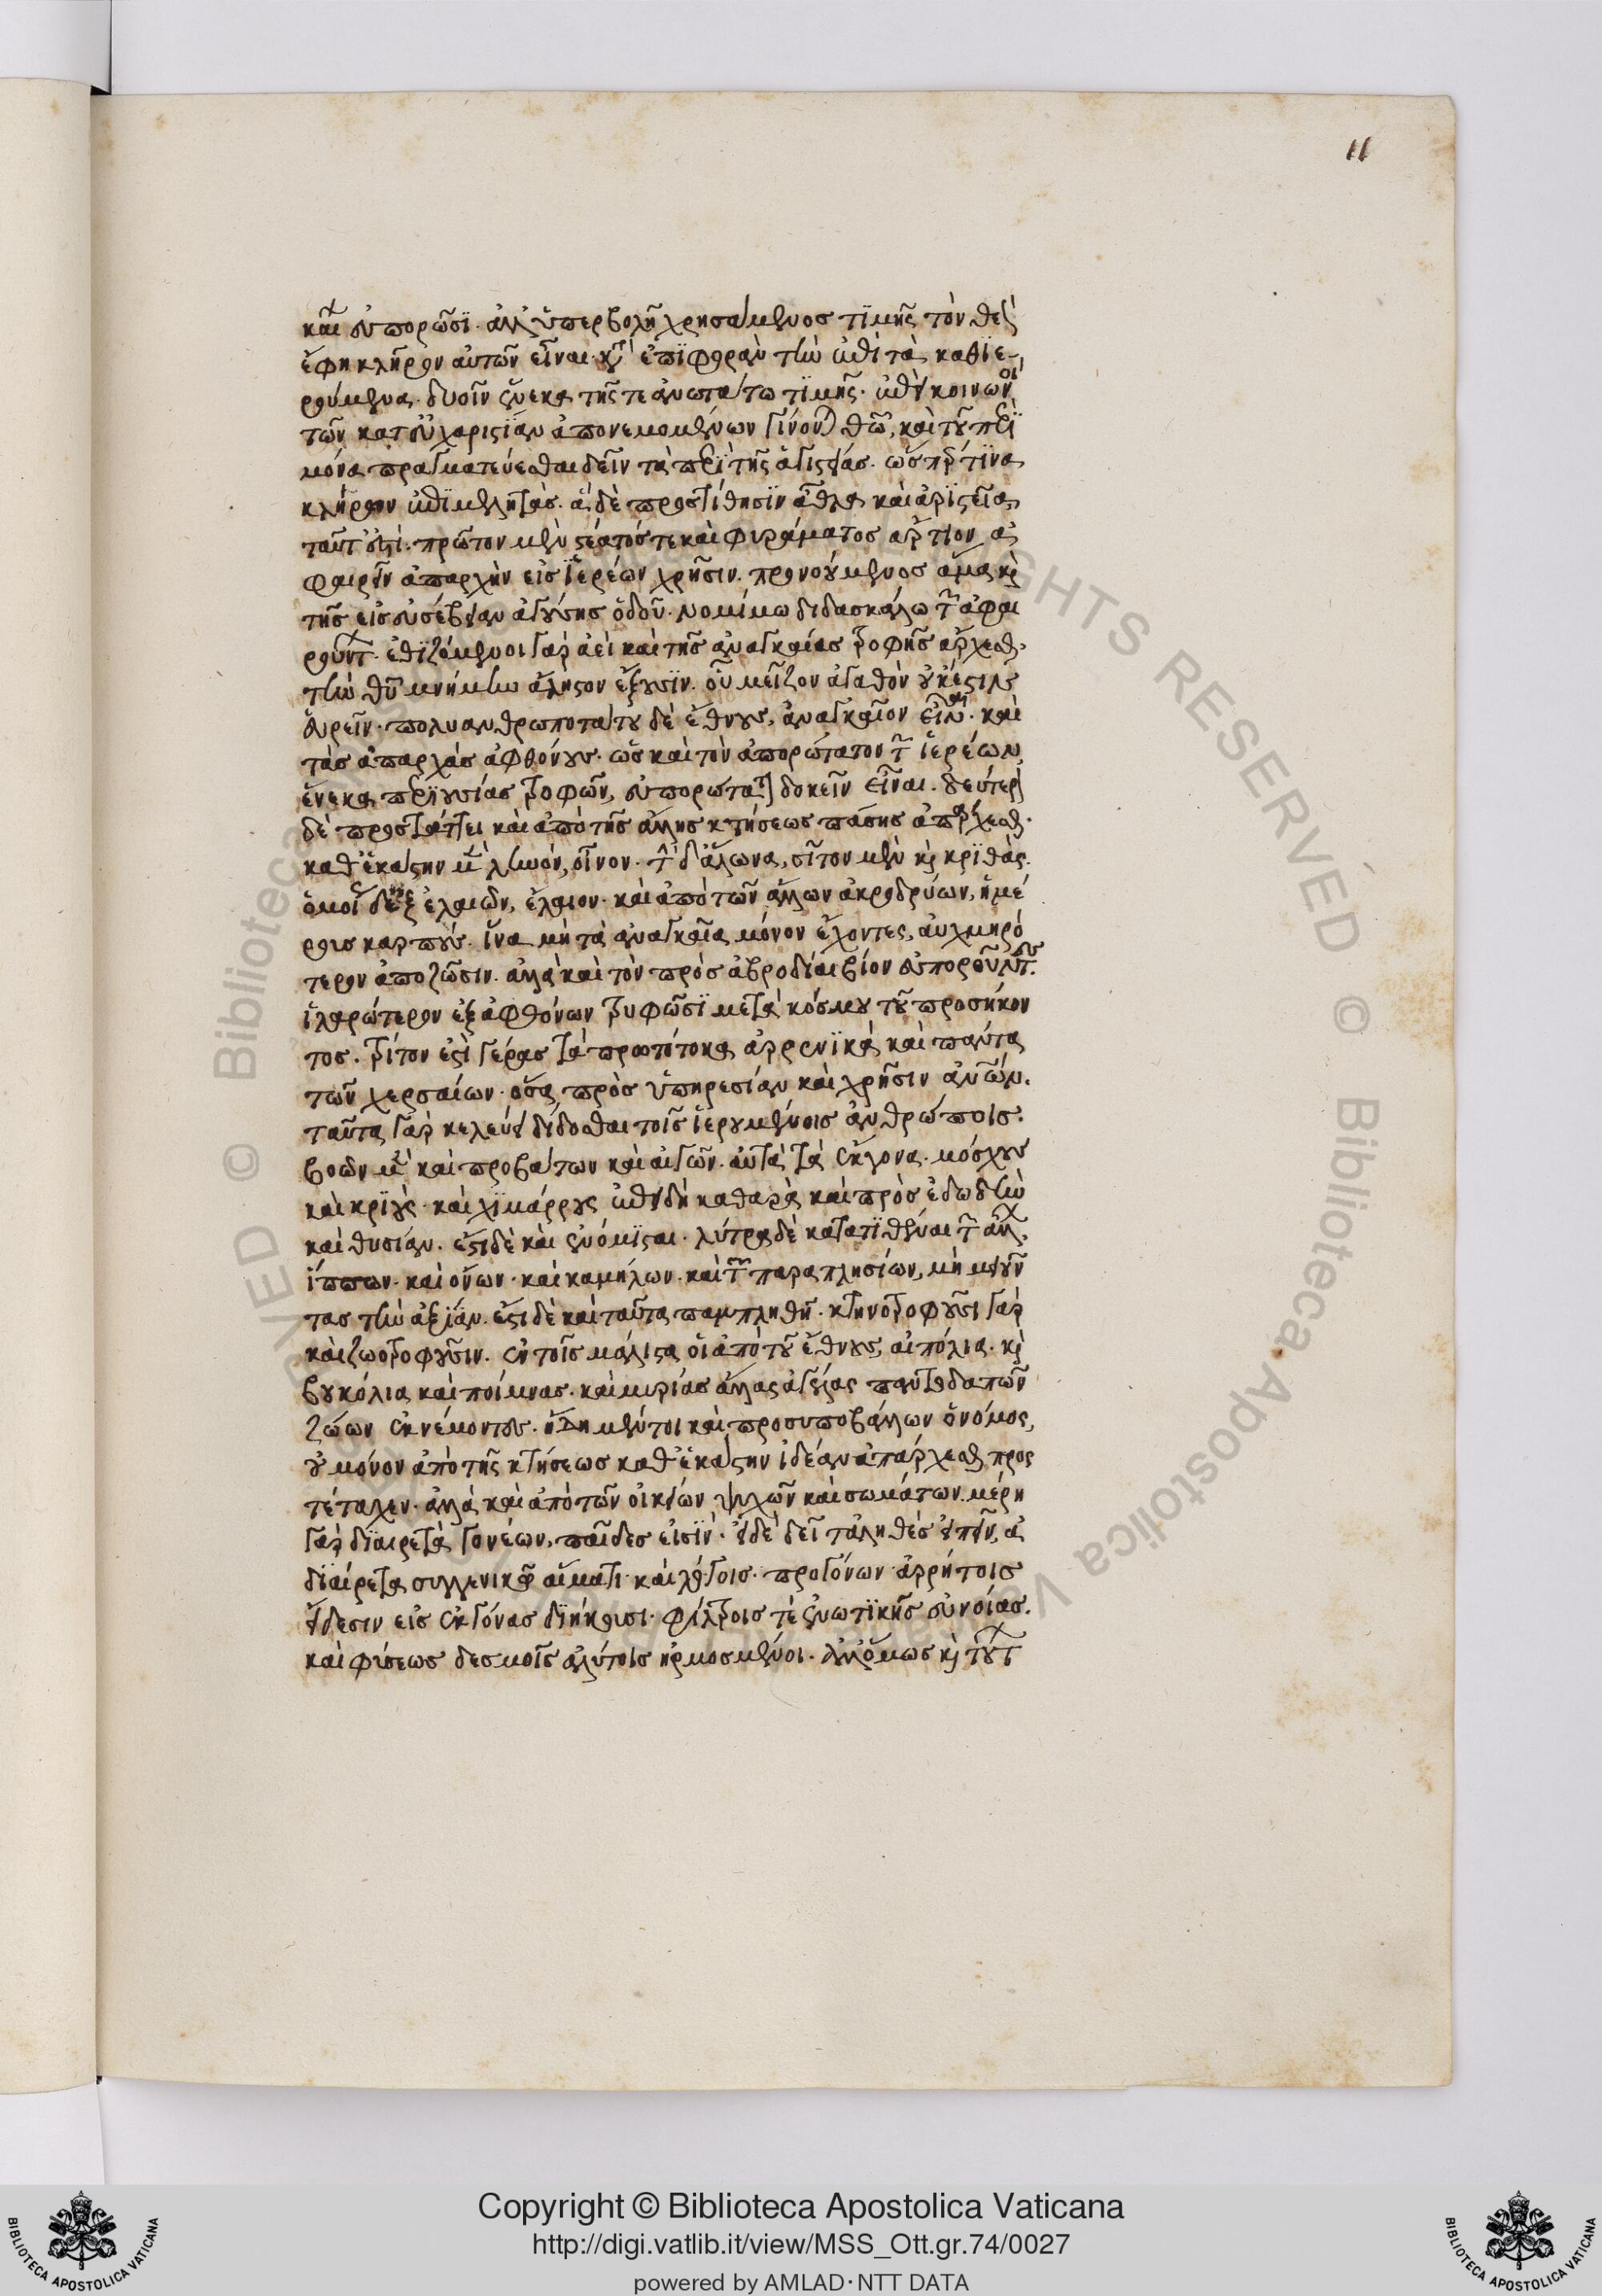 11
κἂν εὐπορῶσϊ. ἀλλ' ὑπερβολῇ χρησάμενος τϊμῆς τὸν θεὸν
ἔφη κλῆρον αὐτῶν εἶναι. κατ' ἐπϊφορὰν τὴν ἐπὶ τὰ καθϊε-
ρούμενα. δυοῖν ἕνεκα τῆς τε ἀνωτάτω τϊμῆς. ἐπεὶ κοινωνοὶ
τῶν κατ' εὐχαριστϊίαν ἀπονεμομένων γίνονται θεῷ, καὶ τοῦ περὶ
μόνα πραγματεύεσθαι δεῖν τὰ περὶ τῆς ἁγιστείας. ὥσπερ τϊνὰ
κλήρων ἐπϊμελητάς. ἃ δὲ προστίθησϊν ἆθλα καὶ ἀρϊστεῖα,
ταῦτ' ἐστί. πρῶτον μὲν στέατός τε καὶ φυράματος ἄρτιον ἀ
φαιρεῖν ἀπαρχὴν εἰς ἱερέων χρῆσιν. προνούμενος ἅμα καὶ
τῆς εἰς εὐσέβειαν ἀγούσης ὁδοῦ. νομίμω διδασκάλω τῶν ἀφαι
ρούντων. ἐθϊζόμενοι γὰρ ἀεὶ καὶ τῆς ἀναγκαίας τροφῆς ἄρχεσθαι.
τὴν θεοῦ μνήμην ἄληστον ἕξουσϊν. οὗ μεῖζον ἀγαθὸν οὐκ ἔστιν
εὑρεῖν. πολυανθρωποτάτου δὲ ἔθνους, ἀναγκαῖον εἶναι. καὶ
τὰς ἀπαρχὰς ἀφθόνους. ὡς καὶ τὸν ἀπορώτατον τῶν ἱερέων,
ἕνεκα περϊουσίας τροφῶν, εὐπορώτατον δοκεῖν εἶναι. δεύτερον
δὲ προστάττει καὶ ἀπὸ τῆς ἄλλης κτήσεως πάσης ἀπάρχεσθαι.
καθ' ἑκάστην μὲν ληνὸν, οἶνον. τὴν δ' ἅλωνα, σῖτον μὲν καὶ κρϊθάς.
ὁμοίως δὲ ἐξ ἐλαιῶν, ἔλαιον. καὶ ἀπὸ τῶν ἄλλων ἀκροδρύων, ἡμέ
ροις καρπούς. ἵνα μὴ τὰ ἀναγκαῖα μόνον ἔχοντες, αὐχμηρό
τερον ἀποζῶσιν. ἀλλὰ καὶ τὸν πρὸς ἁβροδίαι βίον εὐποροῦντες.
ἱλαρώτερον ἐξ ἀφθόνων τρυφῶσϊ μετὰ κόσμου τοῦ προσήκον
τος. τρίτον ἐστὶ γέρας τὰ πρωτότοκα ἀρρενϊκὰ καὶ πάντα
τῶν χερσαίων. ὅσα πρὸς ὑπηρεσίαν καὶ χρῆσιν ἀνθρώπων.
ταῦτα γὰρ κελεύει δίδοσθαι τοῖς ἱερουμένοις ἀνθρώποις.
βοῶν μὲν καὶ προβάτων καὶ αἰγῶν. αὐτὰ τὰ ἔκγονα. μόσχους
καὶ κρϊοὺς. καὶ χϊμάρρους ἐπειδὴ καθαρὰ καὶ πρὸς ἐδωδὴν
καὶ θυσίαν. ἔστι δὲ καὶ ἐνόμϊσται. λύτρα δὲ κατατϊθέναι τῶν ἄλλων,
ἵππων. καὶ ὄνων. καὶ καμήλων. καὶ τῶν παραπλησίων, μὴ μειοῦν
τας τὴν ἀξίαν. ἔστι δὲ καὶ ταῦτα παμπληθῆ. κτηνοτροφοῦσι γὰρ
καὶ ζωοτροφοῦσιν. ἐν τοῖς μάλιστα οἱ ἀπὸ τοῦ ἔθνους, αἰπόλια. καὶ
βουκόλια καὶ ποίμνας. καὶ μυρίας ἄλλας ἀγέλας παντοδαπῶν
ζώων ἐκνέμοντες. ἤδη μέντοι καὶ προσυποβάλλων ὁ νόμος,
οὐ μόνον ἀπὸ τῆς κτήσεως καθ' ἑκάστην ἰδέαν ἀπάρχεσθαι προς
τέταχεν. ἀλλὰ καὶ ἀπὸ τῶν οἰκείων ψυχῶν καὶ σωμάτων. μέρη
γὰρ δϊαιρετὰ γονέων, παῖδες εἰσϊν. εἰ δὲ δεῖ τἀληθὲς εἰπεῖν, ἀ
δϊαίρετα συγγενικῷ αἵματι. καὶ λόγοις. προγόνων ἀρρήτοις
εἴδεσιν εἰς ἐκγόνας δϊήκουσι. φίλτροις τὲ ἑνωτϊκῆς εὐνοίας.
καὶ φύσεως δεσμοῖς ἀλύτοις ἡρμοσμένοι. ἀλλ' ὅμως καὶ τούτων
Copyright © Biblioteca Apostolica Vaticana
http://digi.vatlib.it/view/MSS_Ott.gr.74/0027
powered by AMLAD·NTT DATA